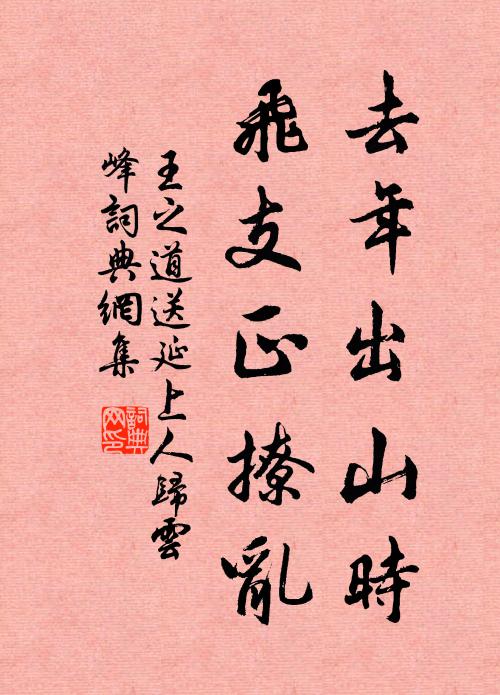 去年出山時
飛支正撩亂
王之道送延上人歸雲
峰詞典網集
詞典
网印